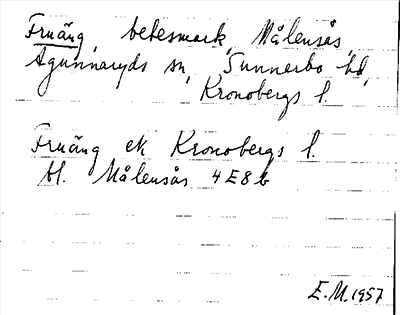 Fruäng, betesmark, Målensås,
Agunnaryds sn, Sunnerbo hd,
Kronobergs l.
Fruäng ek Kronobergs l.
bl. Målensås 4E8b
E.M.1957